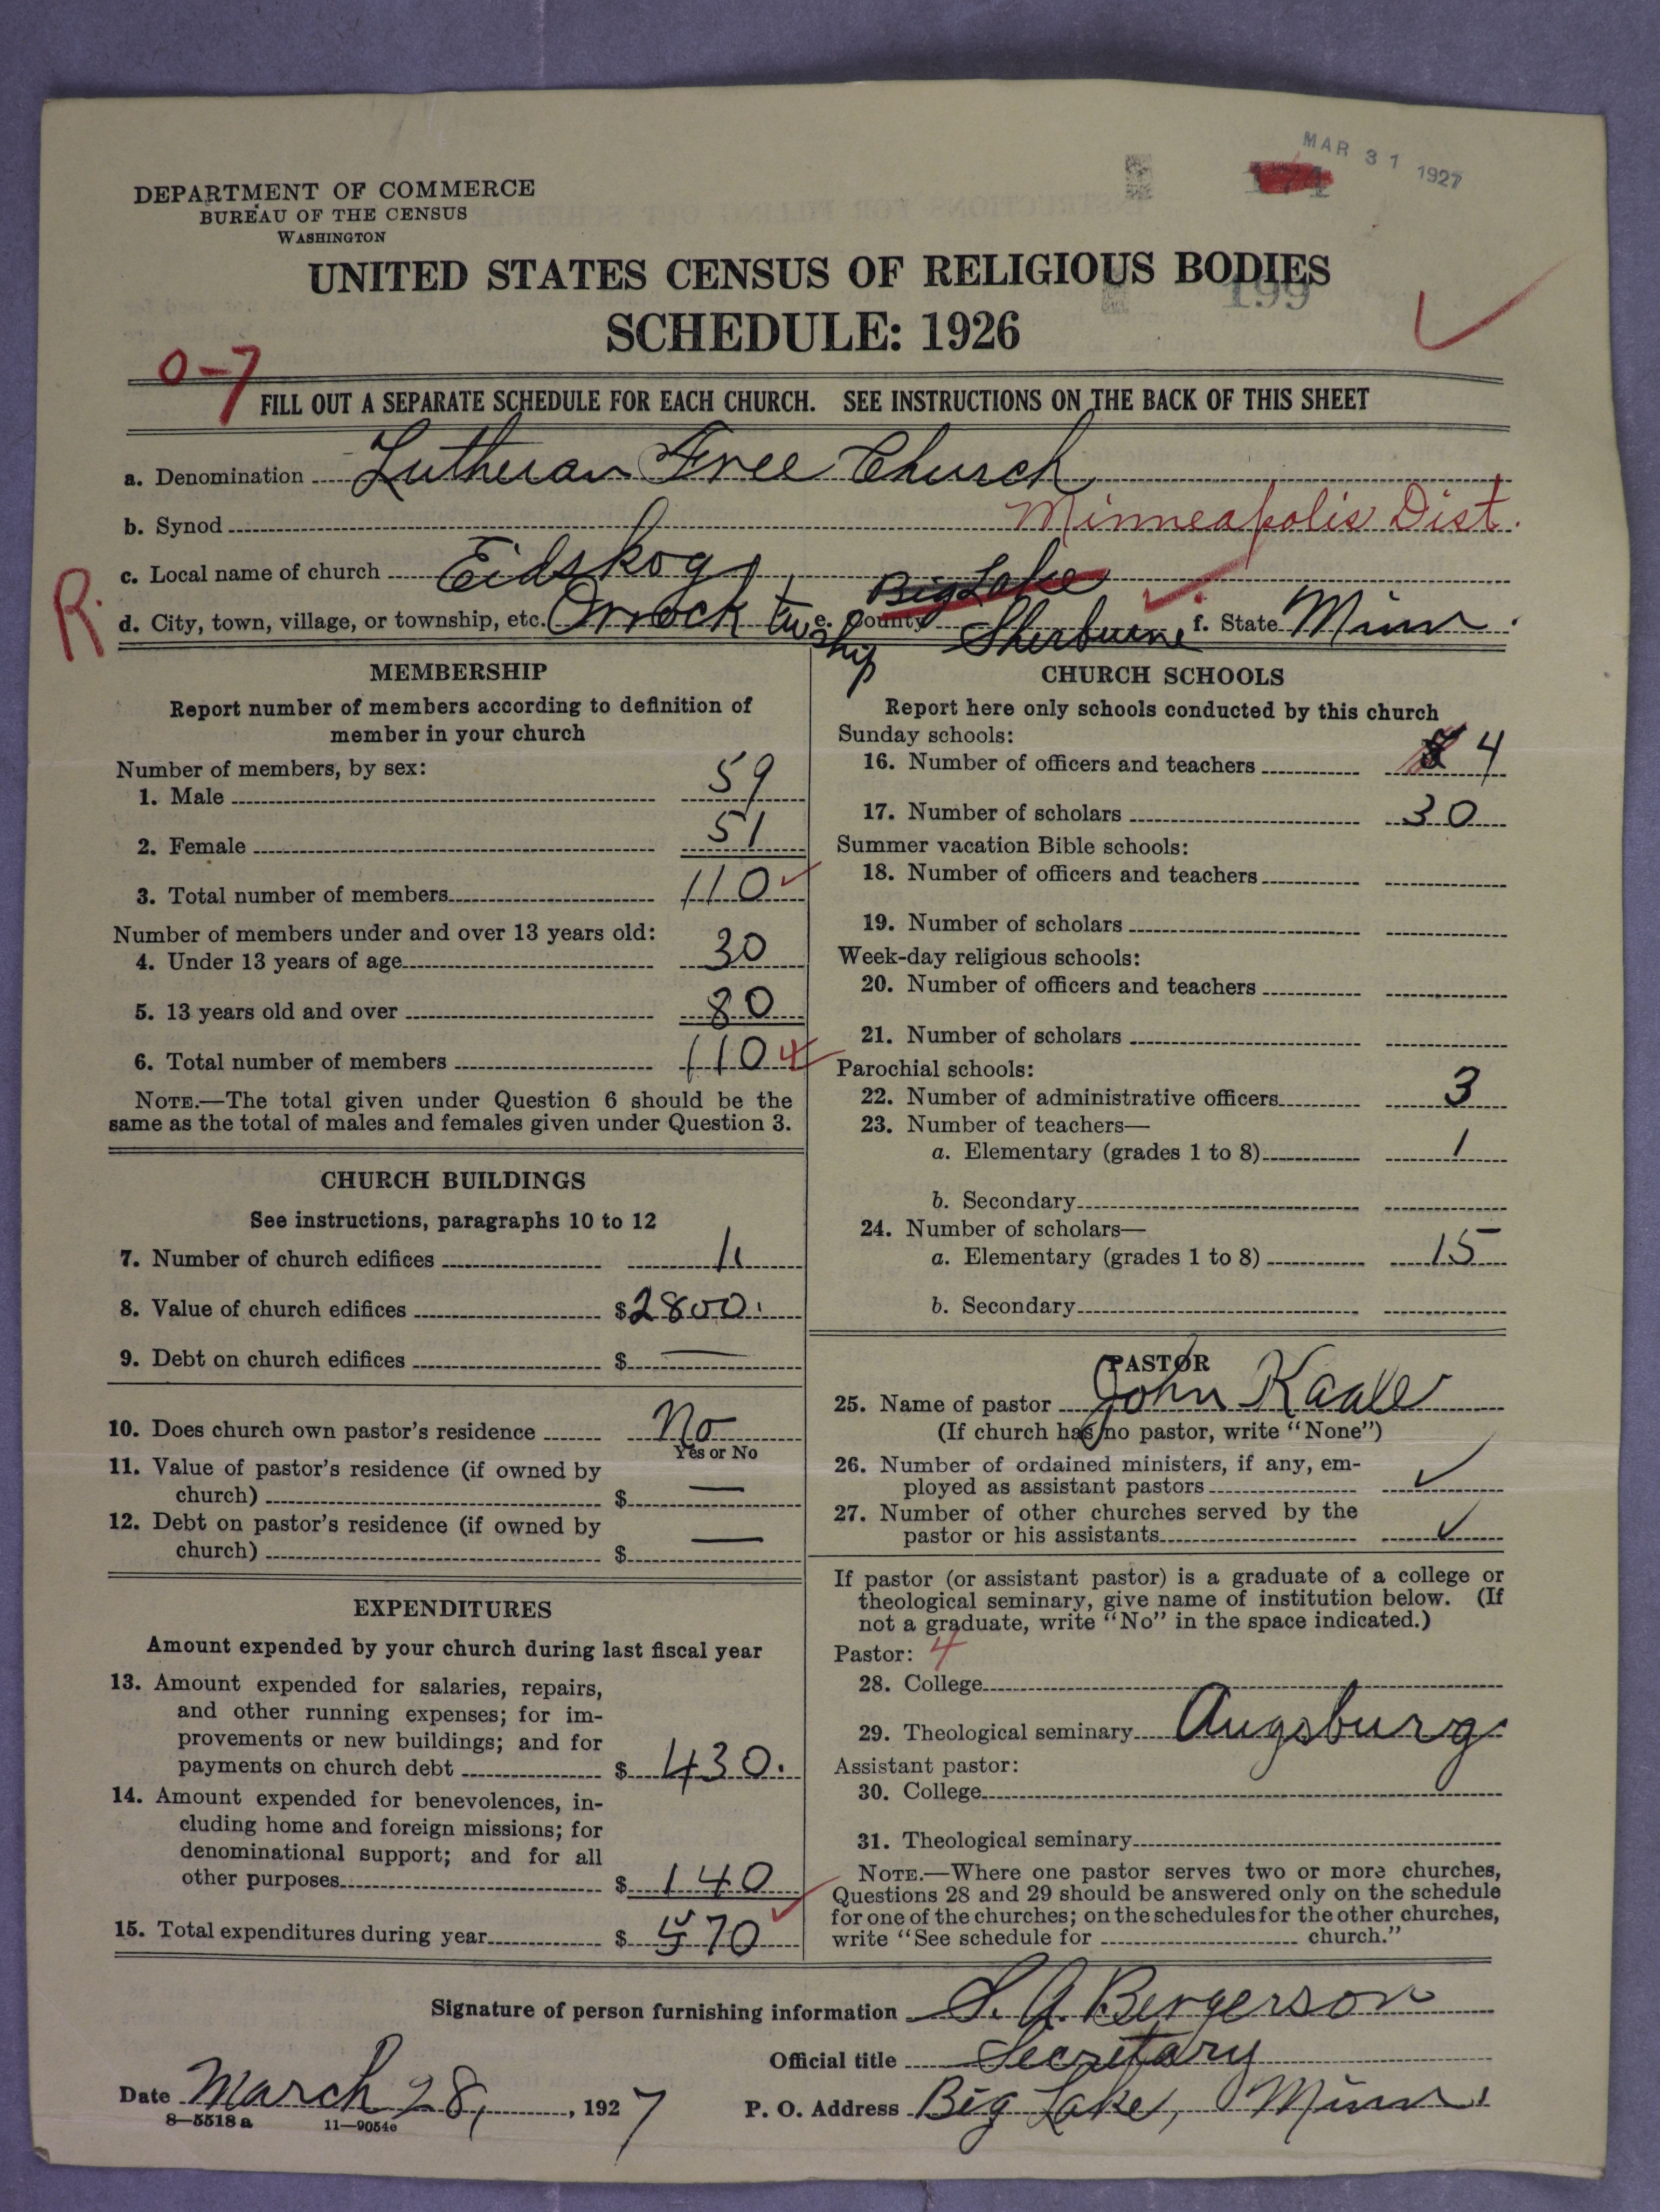 MAR 31 1927
DEPARTMENT OF COMMERCE
BUREAU OF THE CENSUS
WASHINGTON
UNITED STATES CENSUS OF RELIGIOUS BODIES
199
SCHEDULE: 1926
0-7
FILL OUT A SEPARATE SCHEDULE FOR EACH CHURCH. SEE INSTRUCTIONS ON THE BACK OF THIS SHEET
a. Denomination Lutheran Free Church
b. Synod Minneapolis Dist.
c. Local name of church Eidskog
Big Lake
R. d. City, town, village, or township, etc. Orrock twship e. County Sherburne f. State Minn.
MEMBERSHIP
Report number of members according to definition of
member in your church
Number of members, by sex:
1. Male 59
2. Female 51
3. Total number of members 110
Number of members under and over 13 years old:
4. Under 13 years of age 30
5. 13 years old and over 80
6. Total number of members 110 4
NOTE.—The total given under Question 6 should be the
same as the total of males and females given under Question 3.
CHURCH BUILDINGS
See instructions, paragraphs 10 to 12
7. Number of church edifices
8. Value of church edifices $2800.
9. Debt on church edifices $ —
10. Does church own pastor's residence No
Yes or No
11. Value of pastor's residence (if owned by
church) $ —
12. Debt on pastor's residence (if owned by
church) $ —
EXPENDITURES
Amount expended by your church during last fiscal year
13. Amount expended for salaries, repairs,
and other running expenses; for im-
provements or new buildings; and for
payments on church debt $ 430.
14. Amount expended for benevolences, in-
cluding home and foreign missions; for
denominational support; and for all
other purposes $ 140
15. Total expenditures during year $ 570
CHURCH SCHOOLS
Report here only schools conducted by this church
Sunday schools:
16. Number of officers and teachers 4
17. Number of scholars 30
Summer vacation Bible schools:
18. Number of officers and teachers
19. Number of scholars
Week-day religious schools:
20. Number of officers and teachers
21. Number of scholars
Parochial schools:
22. Number of administrative officers 3
23. Number of teachers—
a. Elementary (grades 1 to 8) 1
b. Secondary
24. Number of scholars—
a. Elementary (grades 1 to 8) 15
b. Secondary
PASTOR
25. Name of pastor John Kaale
(If church has no pastor, write "None")
26. Number of ordained ministers, if any, em-
ployed as assistant pastors ✓
27. Number of other churches served by the
pastor or his assistants ✓
If pastor (or assistant pastor) is a graduate of a college or
theological seminary, give name of institution below. (If
not a graduate, write "No" in the space indicated.)
Pastor: 4
28. College
29. Theological seminary Augsburg
Assistant pastor:
30. College
31. Theological seminary
NOTE.—Where one pastor serves two or more churches,
Questions 28 and 29 should be answered only on the schedule
for one of the churches; on the schedules for the other churches,
write "See schedule for church."
Signature of person furnishing information S. A. Bergerson
Official title Secretary
Date March 28, 1927 P. O. Address Big Lake, Minn.
8—5518 a 11—9054c